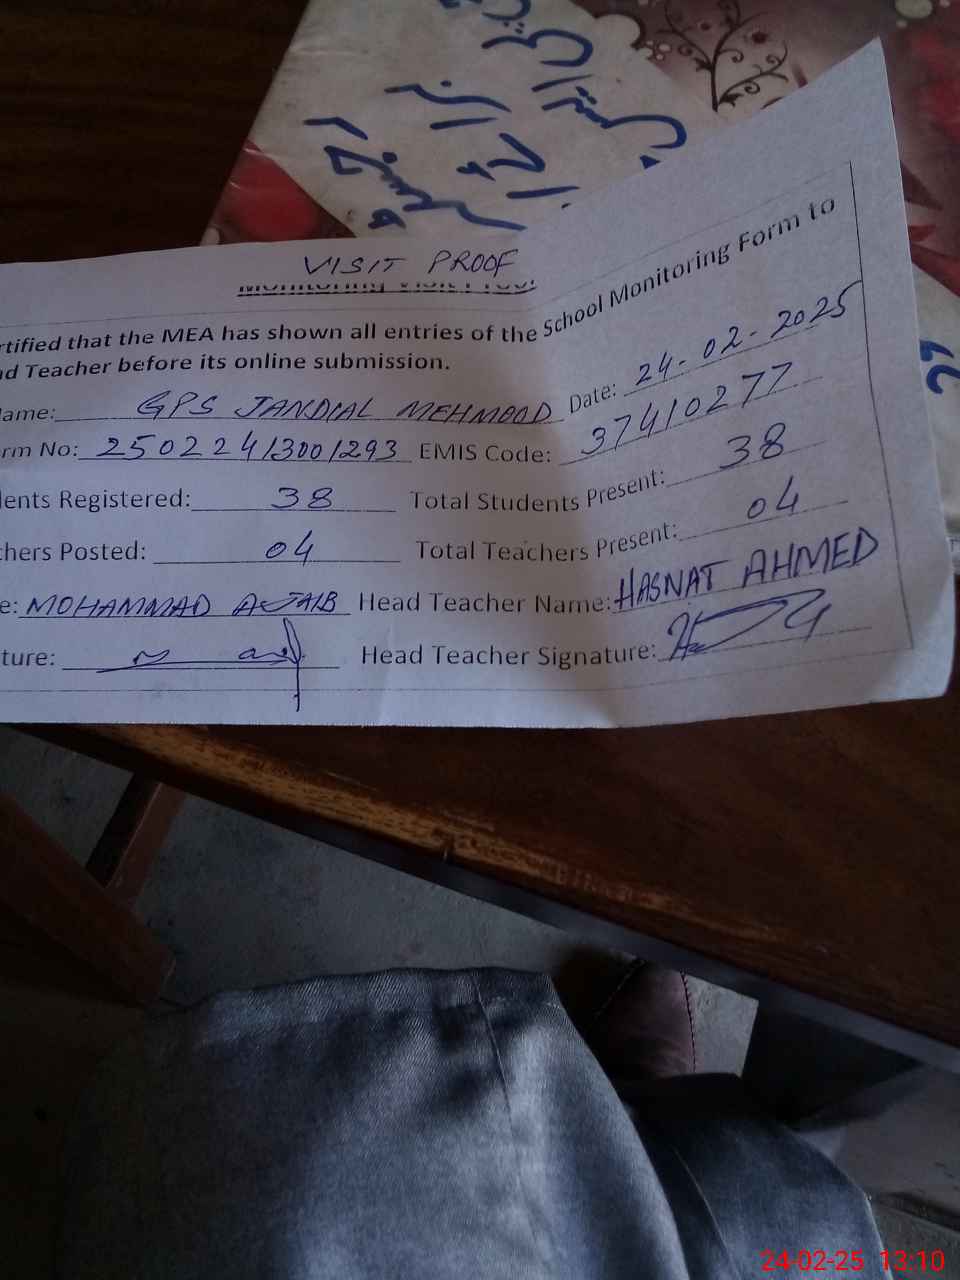 VISIT PROOF
Monitoring Visit Proof
rtified that the MEA has shown all entries of the School Monitoring Form to
ad Teacher before its online submission.
ame: GPS JANDIAL MEHMOOD Date: 24-02-2025
rm No: 250224/3001293 EMIS Code: 37410277
lents Registered: 38 Total Students Present: 38
chers Posted: 04 Total Teachers Present: 04
e: MOHAMMAD AJAIB Head Teacher Name: HASNAT AHMED
ture: Head Teacher Signature:
24-02-25 13:10